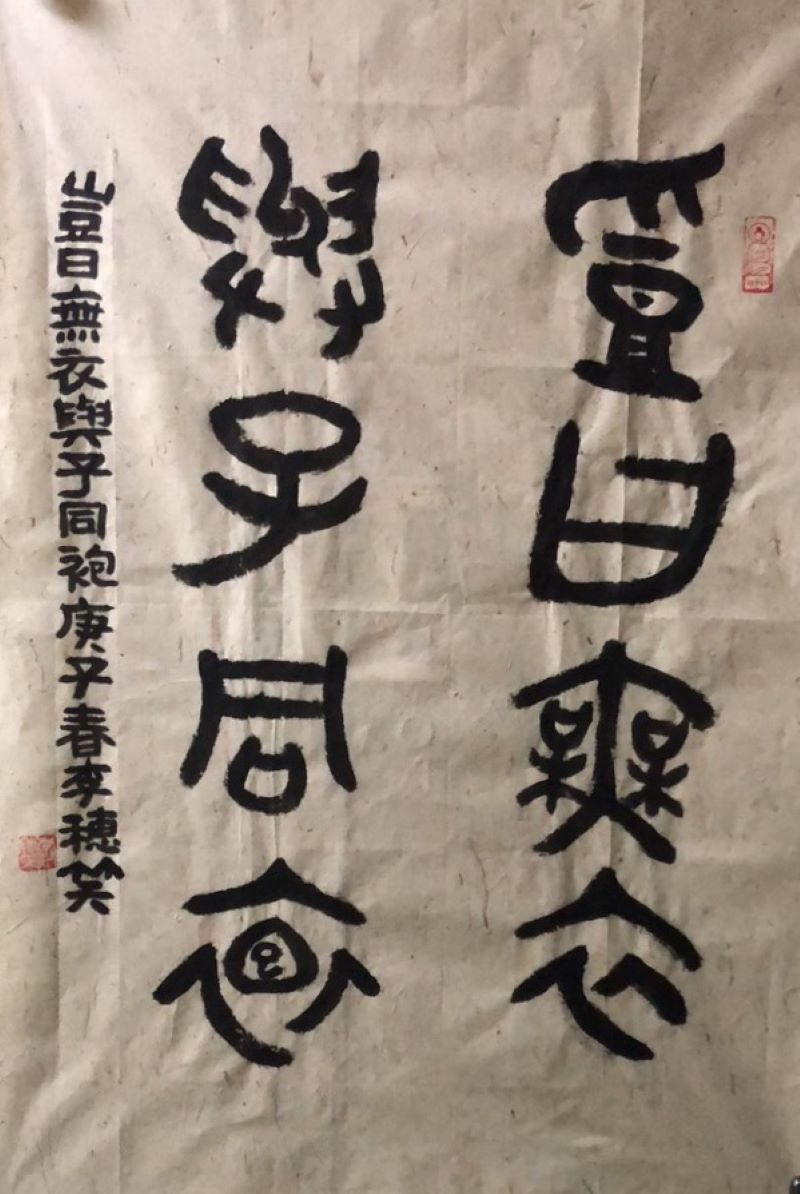 豈曰無衣
與子同袍
豈曰無衣與子同袍庚子春李穗笑